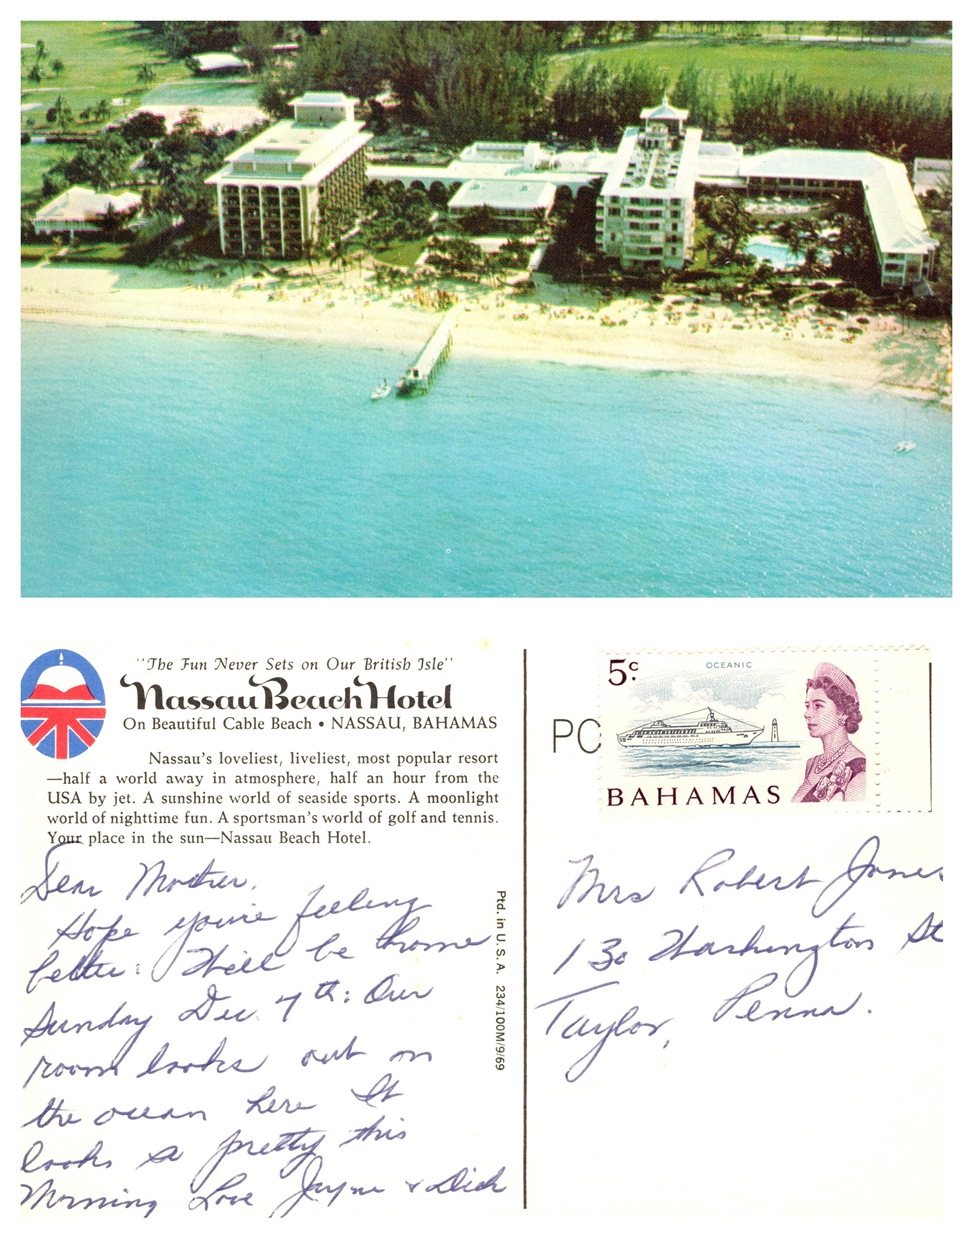 "The Fun Never Sets on Our British Isle"
Nassau Beach Hotel
On Beautiful Cable Beach • NASSAU, BAHAMAS
Nassau's loveliest, liveliest, most popular resort
—half a world away in atmosphere, half an hour from the
USA by jet. A sunshine world of seaside sports. A moonlight
world of nighttime fun. A sportsman's world of golf and tennis.
Your place in the sun—Nassau Beach Hotel.
Dear Mother,
Hope you're feeling
better. We'll be home
Sunday Dec. 7th: Our
room looks out on
the ocean here It
looks so pretty this
Morning Love Jayne & Dick
Ptd. in U. S. A. 234/100M/9/69
PC
5c
OCEANIC
BAHAMAS
Mrs Robert Jones
130 Washington St
Taylor, Penna.